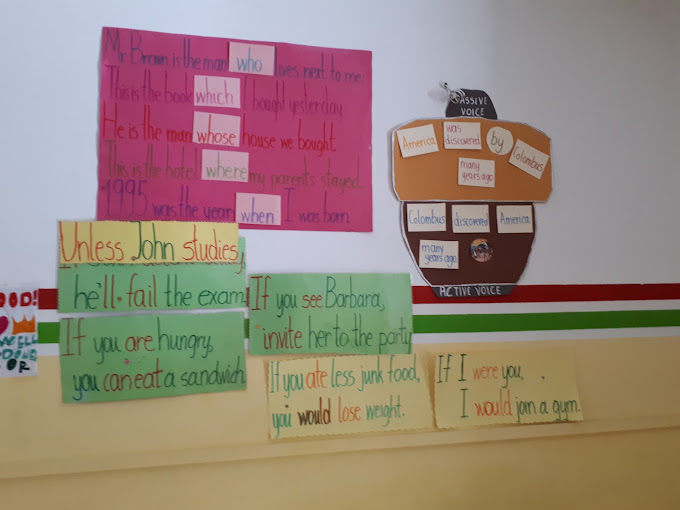 Mr Brown is the man who lives next to me
This is the book which I bought yesterday
He is the man whose house we bought.
This is the hotel where my parents stayed.
1995 was the year when I was born
PASSIVE
VOICE
America was discovered by Columbus
many years ago
Columbus discovered America
many years ago
ACTIVE VOICE
Unless John studies,
he'll fail the exam.
If you are hungry,
you can eat a sandwich.
If you see Barbara,
invite her to the party
If you ate less junk food,
you would lose weight.
If I were you,
I would join a gym.
WELL